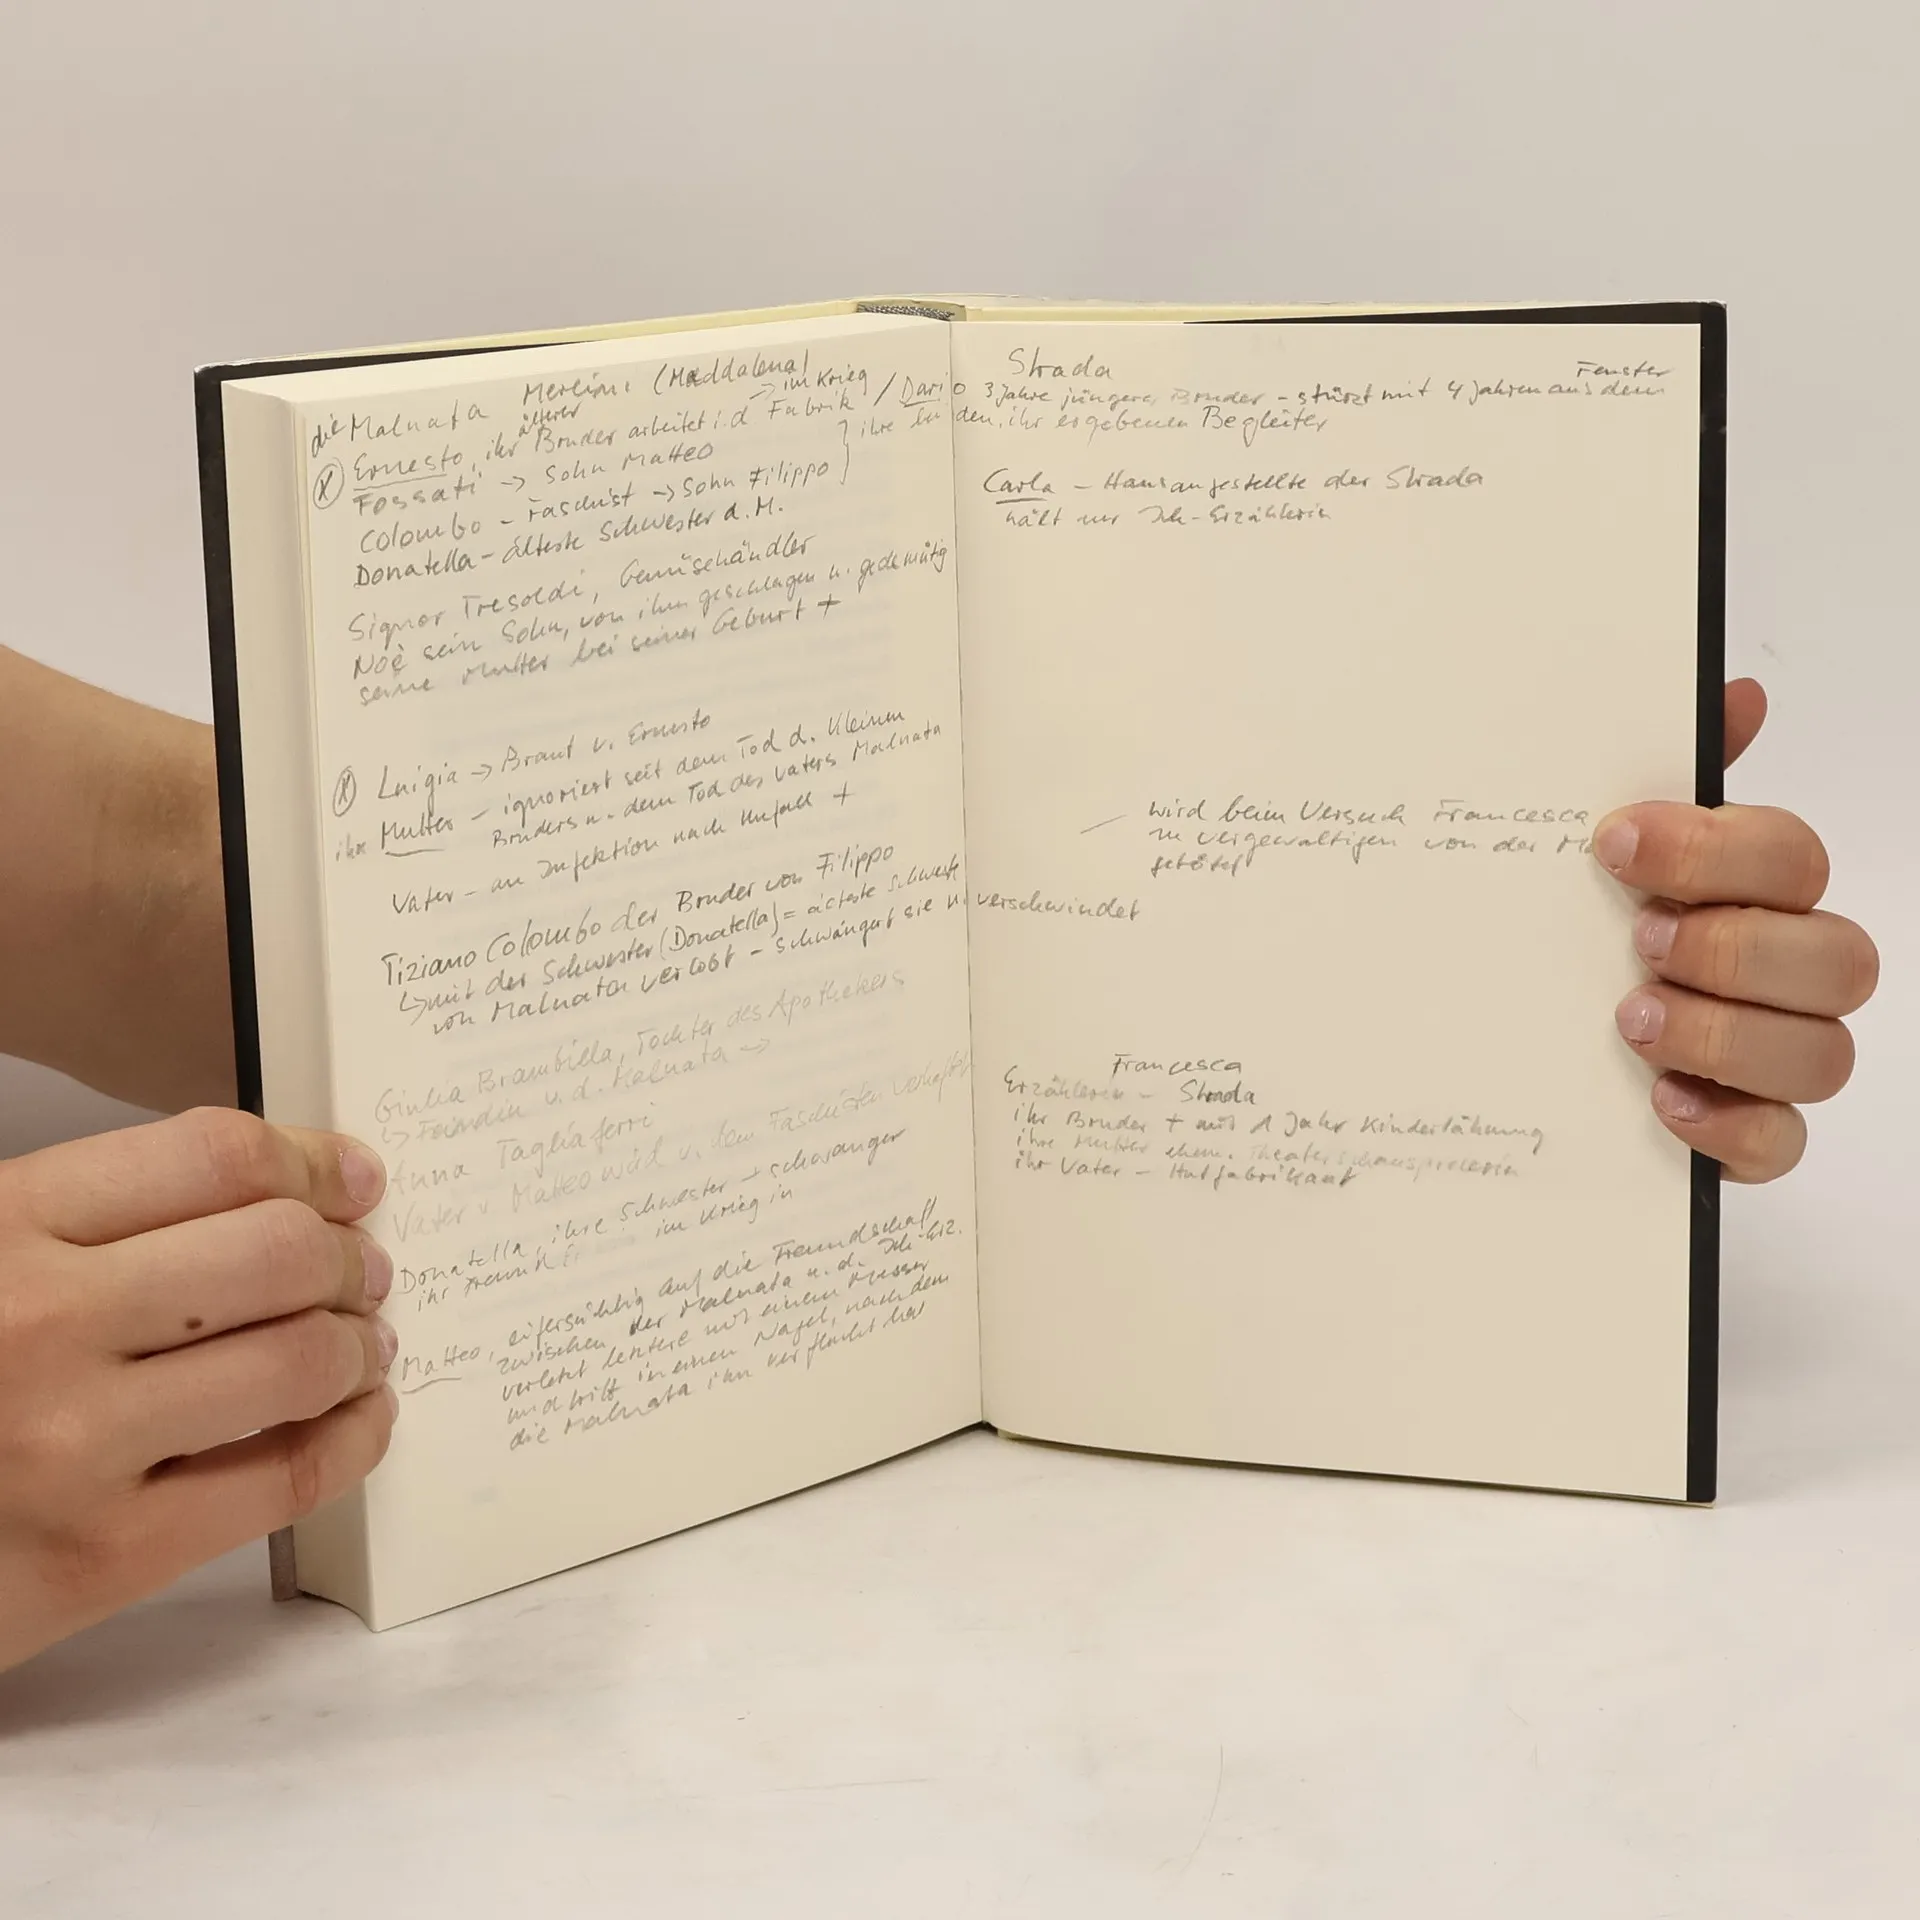 Merlini (Maddalena)
die Malnata
älterer → im Krieg
Ernesto, ihr Bruder arbeitet i. d Fabrik / Dario 3 Jahre jüngerer Bruder - stürzt mit 4 Jahren aus dem
Fenster
Fossati → Sohn Matteo
Colombo - Faschist → Sohn Filippo } ihre beiden, ihr ergebenen Begleiter
Donatella - älteste Schwester d. M.
Signor Tresoldi, Gemüsehändler
Noè sein Sohn, von ihm geschlagen u. gedemütig
seine Mutter bei seiner Geburt +
Luigia → Braut v. Ernesto
ihre Mutter - ignoriert seit dem Tod d. Kleinen
Bruders u. dem Tod des Vaters Malnata
Vater - an Infektion nach Unfall +
Tiziano Colombo der Bruder von Filippo
↳ mit der Schwester (Donatella) = älteste Schwester
von Malnata verlobt - schwängert sie u. verschwindet
Giulia Brambilla, Tochter des Apothekers
↳ Feindin v. d. Malnata →
Anna Tagliaferri
Vater v Matteo wird v. den Faschisten verhaftet
Donatella, ihre Schwester → schwanger
ihr Freund im Krieg in
Matteo, eifersüchtig auf die Freundschaft
zwischen der Malnata u. d. Ich-Erz.
verletzt letztere mit einem Messer
und tritt in einen Nagel, nachdem
die Malnata ihn verflucht hat
Strada
Carla - Hausangestellte der Strada
hält zur Ich-Erzählerin
wird beim Versuch Francesca
zu vergewaltigen von der
getötet
Francesca
Erzählerin - Strada
ihr Bruder + mit 1 Jahr Kinderlähmung
ihre Mutter ehem. Theaterschauspielerin
ihr Vater - Hutfabrikant